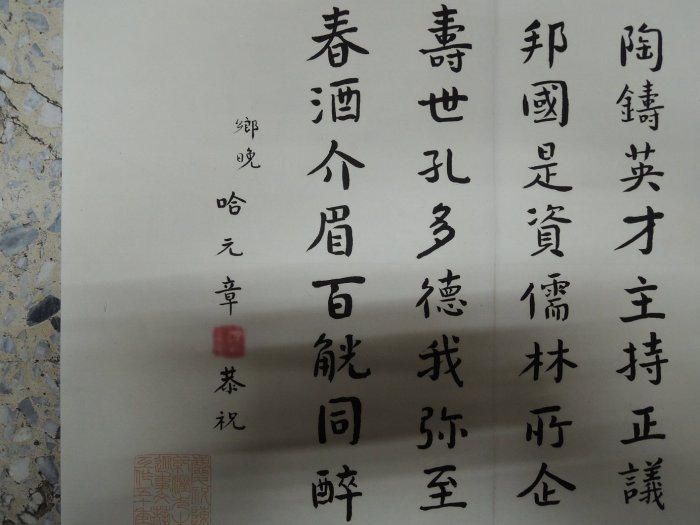 陶鑄英才主持正議
邦國是資儒林所企
壽世孔多德我弥至
春酒介眉百觥同醉
鄉晚 哈元章 恭祝